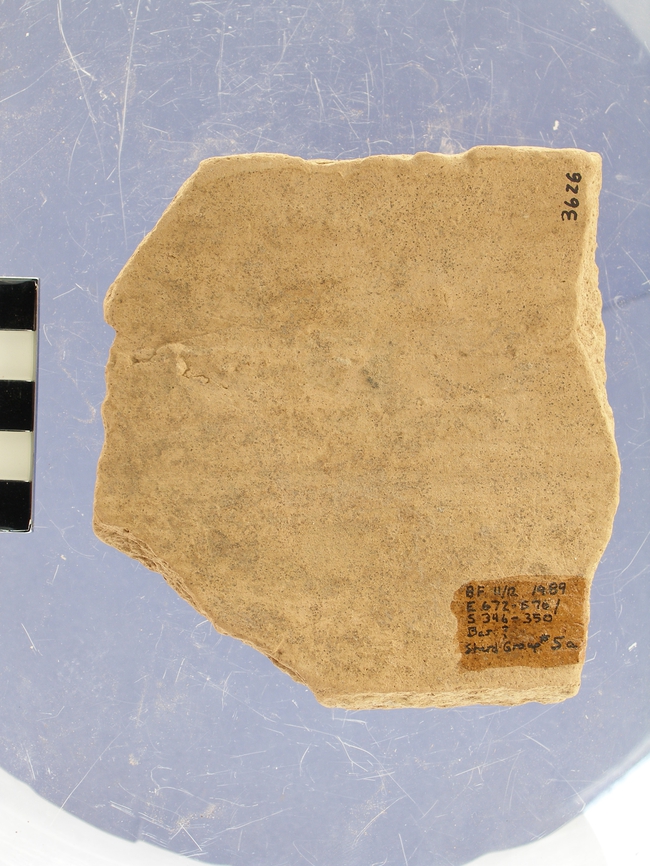 3626
BF 11/12 1989
E 672-676/
S 346-350
Bar ?
Sherd Group # 5a